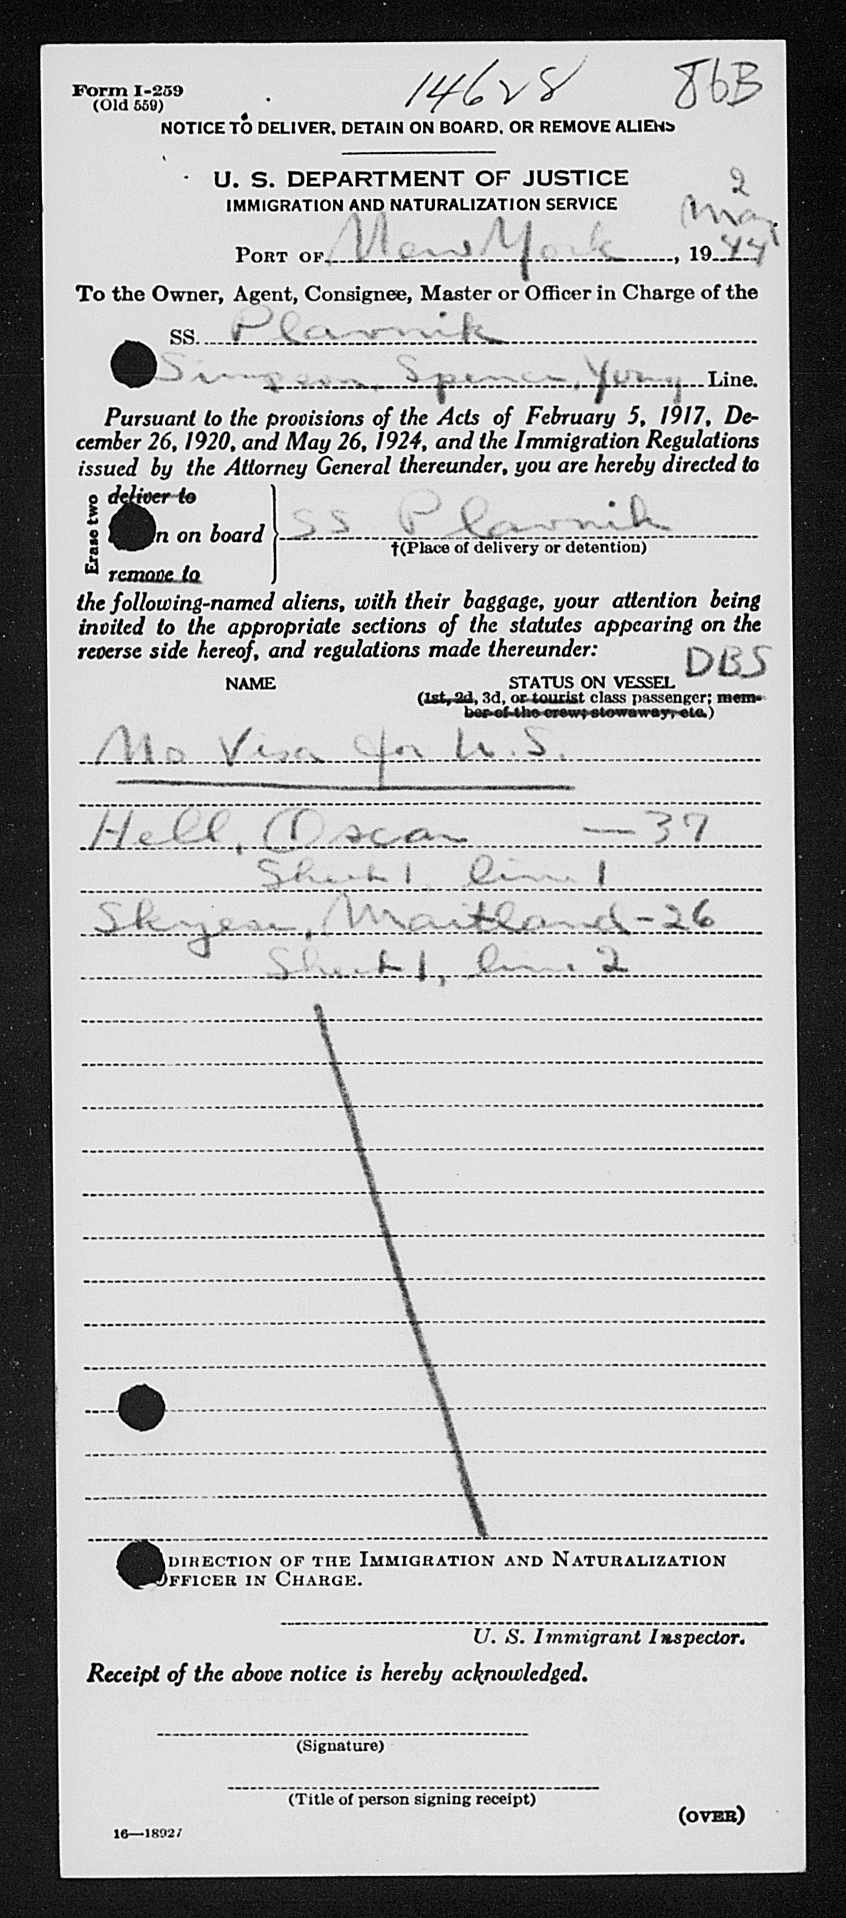 Form I-259
(Old 559)
14628
86B
NOTICE TO DELIVER, DETAIN ON BOARD, OR REMOVE ALIENS
U. S. DEPARTMENT OF JUSTICE
IMMIGRATION AND NATURALIZATION SERVICE
2
May
PORT OF New York, 1944
To the Owner, Agent, Consignee, Master or Officer in Charge of the
SS. Plavnik
Simpson, Spence, Young Line.
Pursuant to the provisions of the Acts of February 5, 1917, De-
cember 26, 1920, and May 26, 1924, and the Immigration Regulations
issued by the Attorney General thereunder, you are hereby directed to
Erase two
deliver to
n on board
SS Plavnik
†(Place of delivery or detention)
remove to
the following-named aliens, with their baggage, your attention being
invited to the appropriate sections of the statutes appearing on the
reverse side hereof, and regulations made thereunder:
DBS
NAME
STATUS ON VESSEL
(1st, 2d, 3d, or tourist class passenger; mem-
ber of the crew; stowaway, etc.)
No Visa for U.S.
Hell, Oscar — 37
Sheet 1, line 1
Maitland - 26
Sheet 1, line 2
DIRECTION OF THE IMMIGRATION AND NATURALIZATION
OFFICER IN CHARGE.
U. S. Immigrant Inspector.
Receipt of the above notice is hereby acknowledged.
(Signature)
(Title of person signing receipt)
(OVER)
16—18927